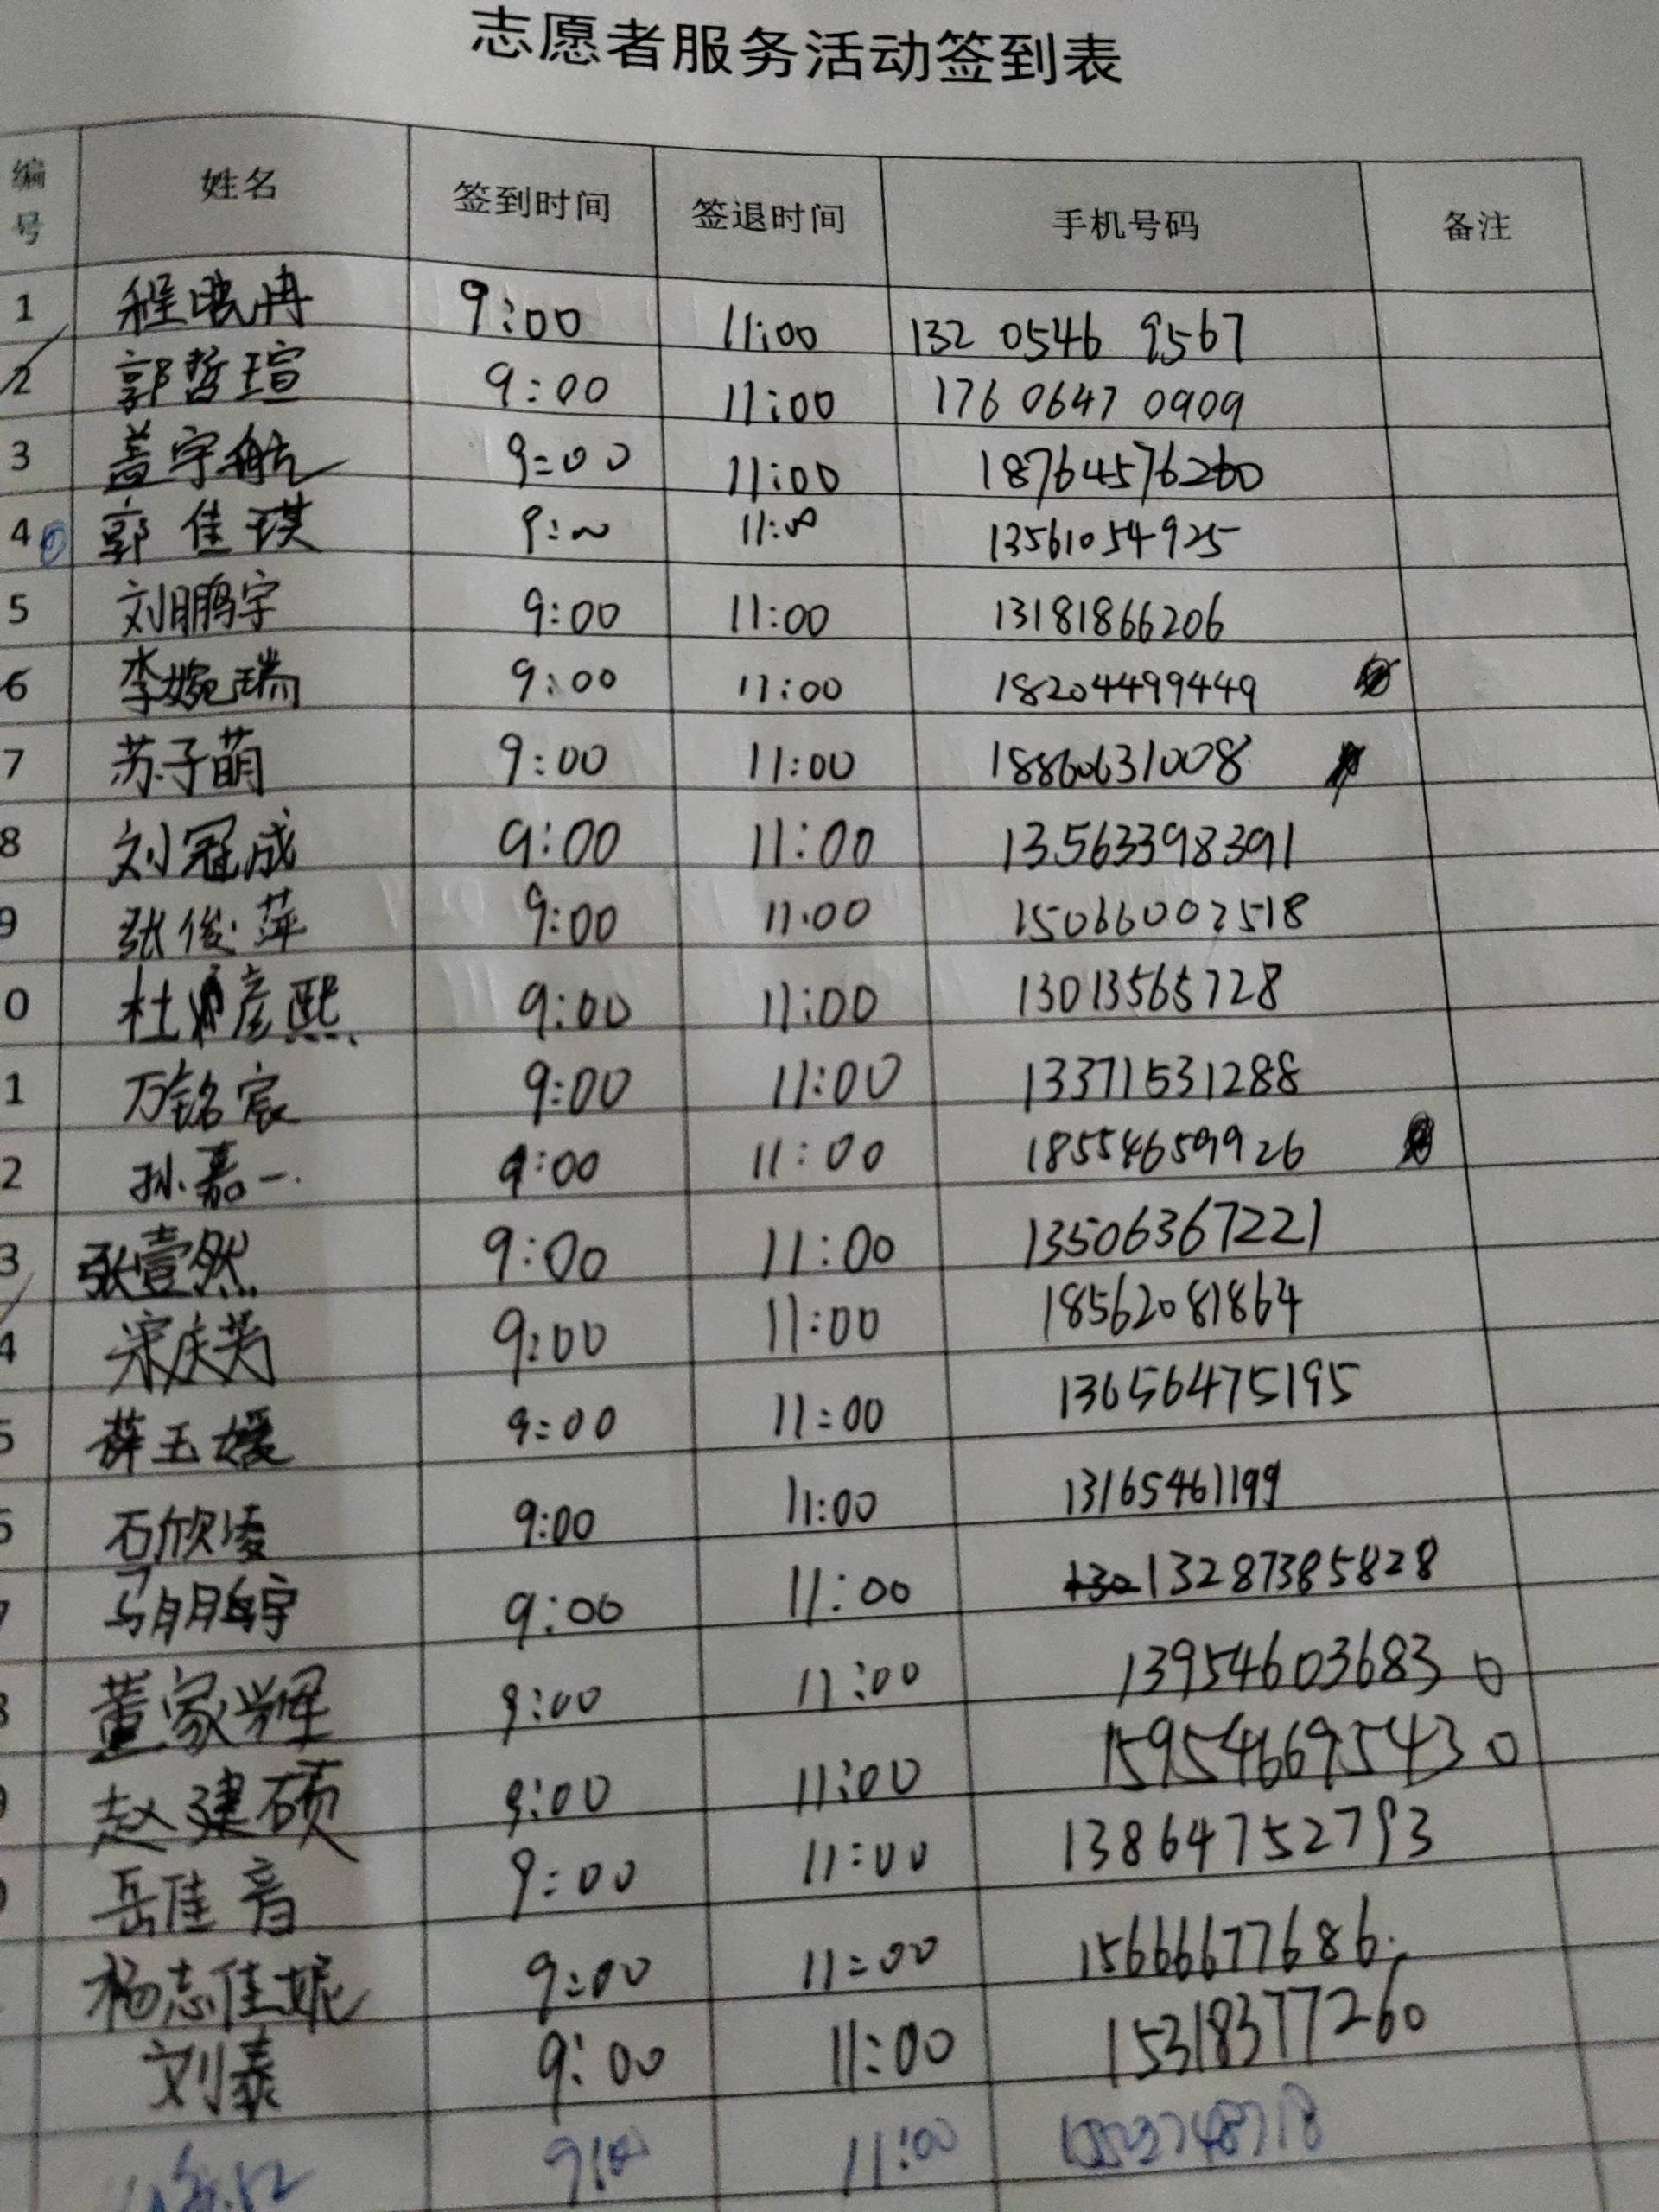 志愿者服务活动签到表
编号 姓名 签到时间 签退时间 手机号码 备注
1 程晚冉 9:00 11:00 132 0546 9567
2 郭哲瑄 9:00 11:00 176 0647 0909
3 盖宇航 9:00 11:00 18764576260
4 郭佳琪 9:00 11:00 13561054925
5 刘鹏宇 9:00 11:00 13181866206
6 李婉瑞 9:00 11:00 18204499449
7 苏子萌 9:00 11:00 18860631008
8 刘冠成 9:00 11:00 13563398391
9 张俊萍 9:00 11:00 15066002518
0 杜彦熙 9:00 11:00 13013565728
1 万铭宸 9:00 11:00 13371531288
2 孙嘉一 9:00 11:00 18554659926
3 张壹然 9:00 11:00 13506367221
4 宋庆芳 9:00 11:00 18562081864
5 薛玉媛 9:00 11:00 13656475195
6 石欣凌 9:00 11:00 13165461199
7 马鹏宇 9:00 11:00 13287385828
8 董家辉 9:00 11:00 13954603683
9 赵建硕 9:00 11:00 15954669543
0 岳佳音 9:00 11:00 13864752793
杨志佳妮 9:00 11:00 15666677686
刘泰 9:00 11:00 15318377260
9:00 11:00